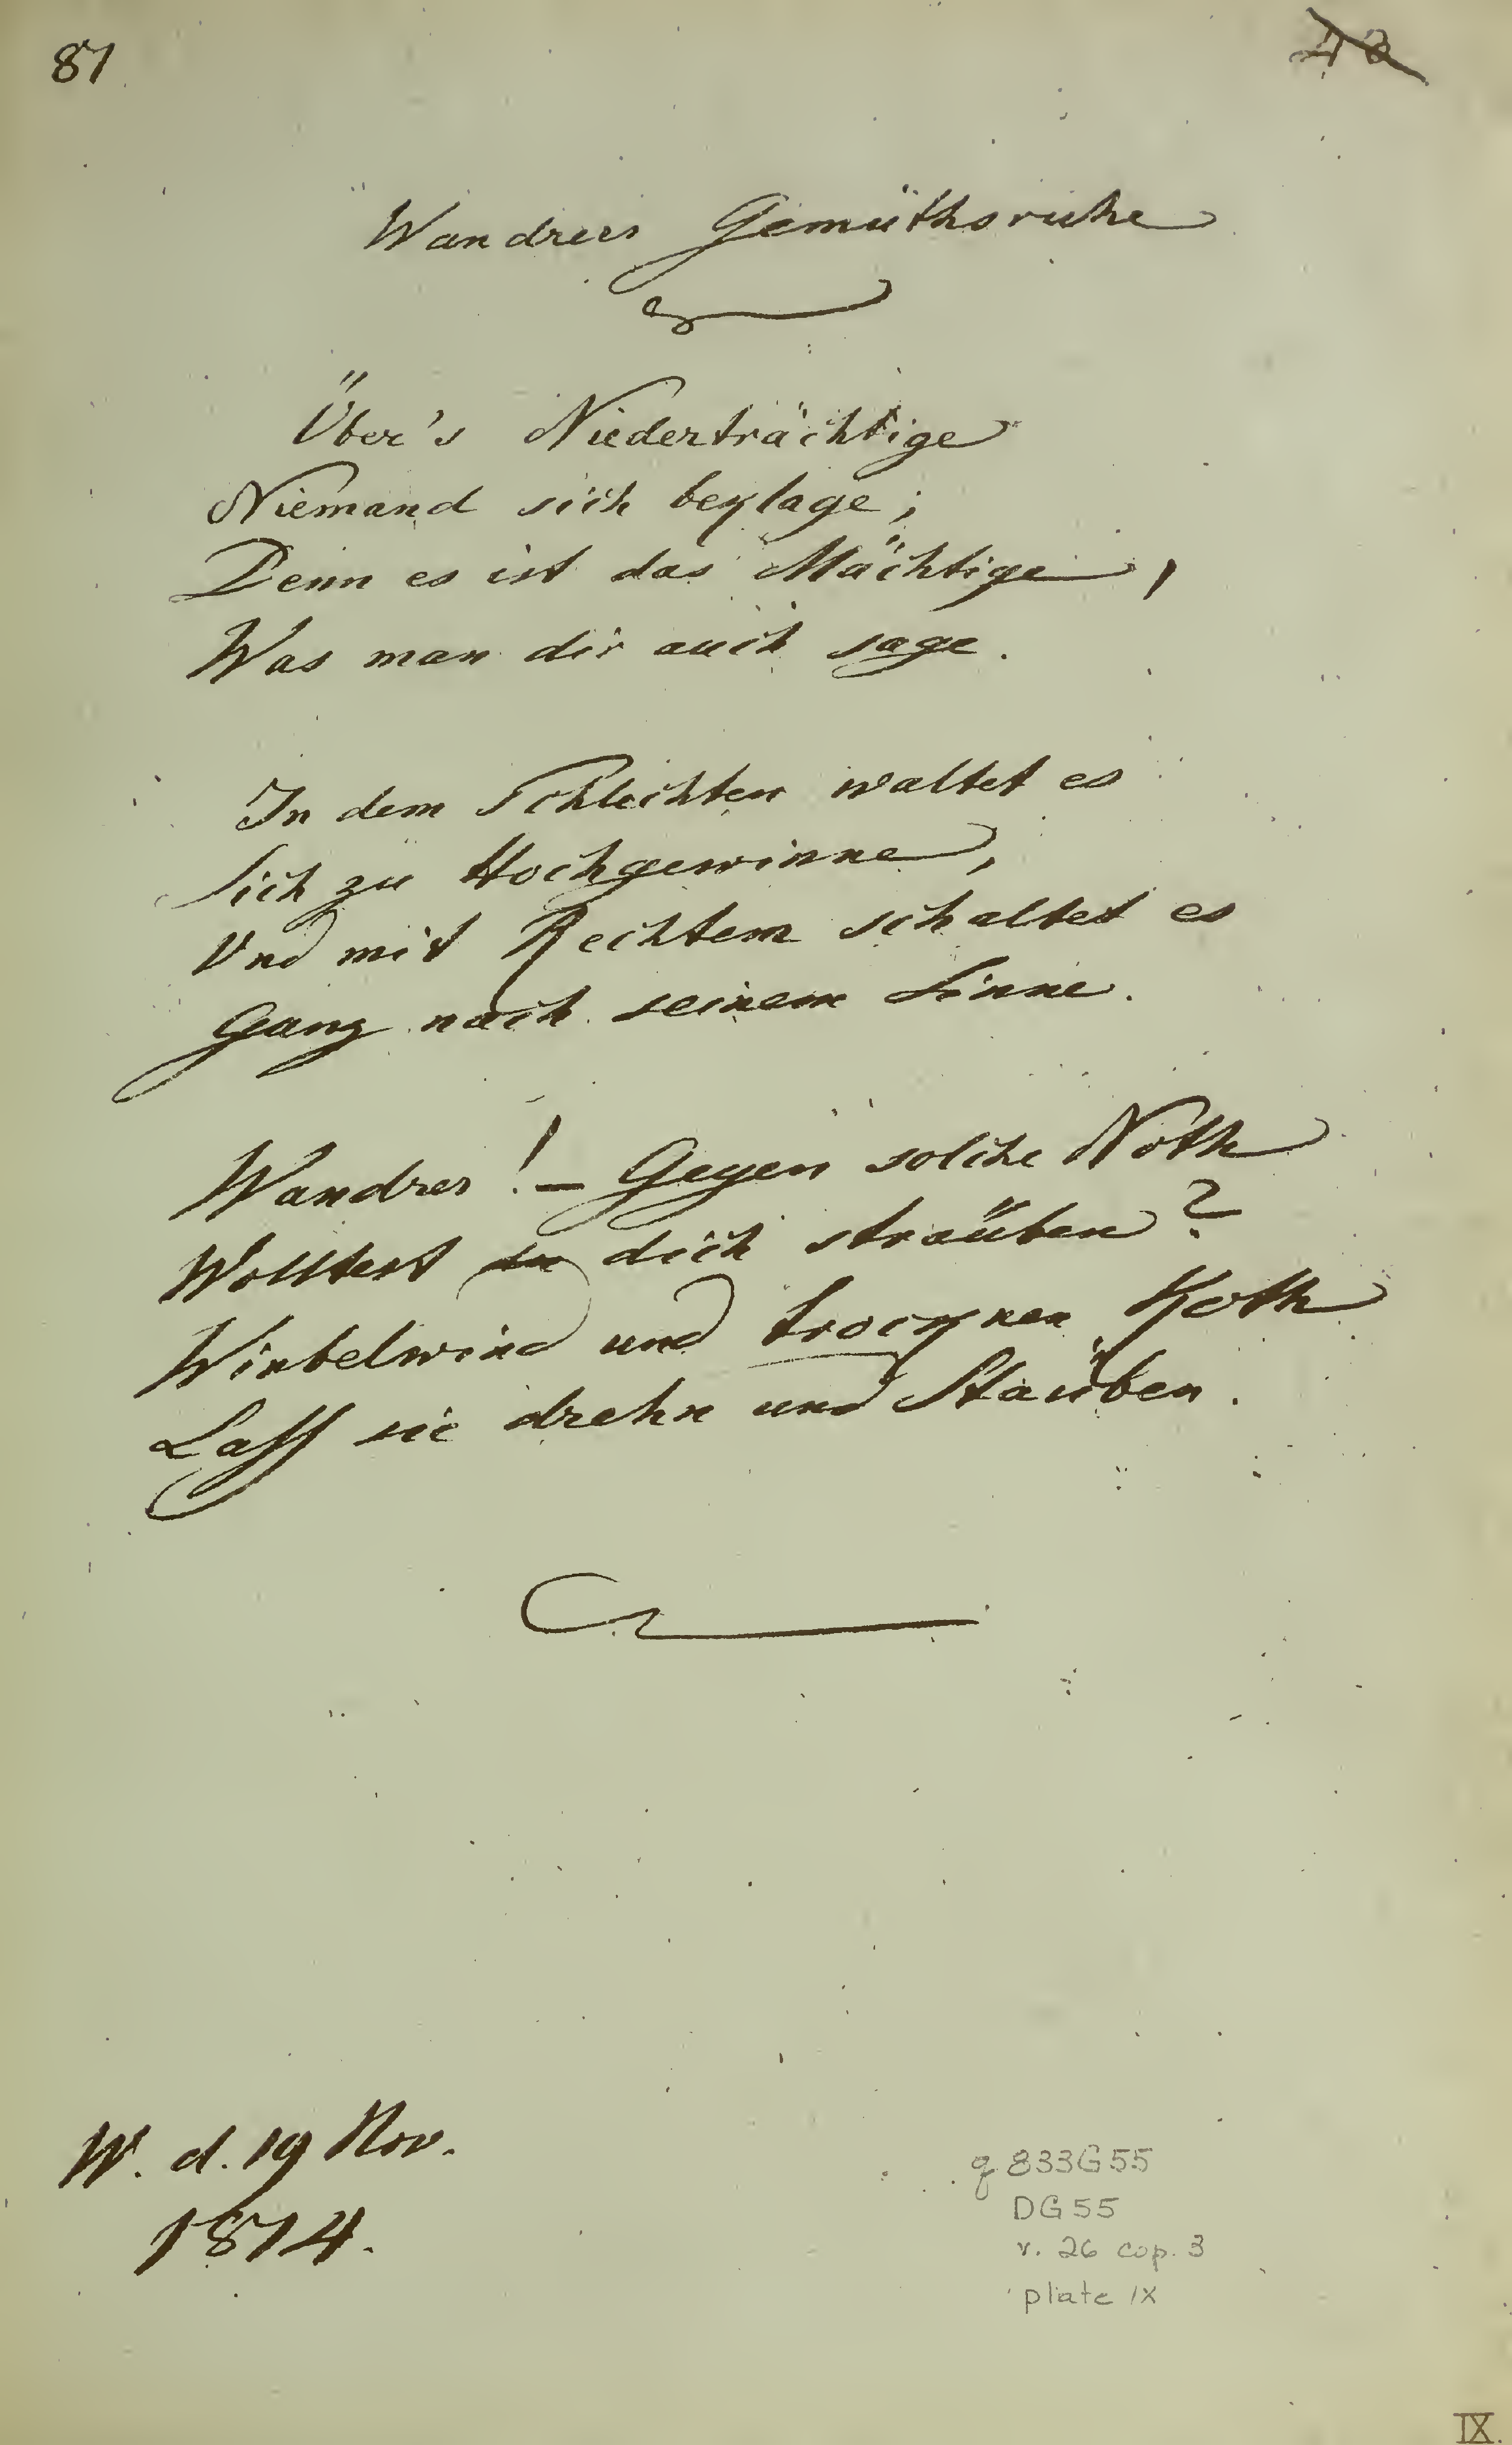 87
42
Wandrers Gemüthsruhe
Über's Niederträchtige
Niemand sich beklage;
Denn es ist das Mächtige,
Was man dir auch sage.
In dem Schlechten waltet es
Sich zu Hochgewinne,
Und mit Rechtem schaltet es
Ganz nach seinem Sinne.
Wandrer! – Gegen solche Noth
Wolltest du dich sträuben?
Wirbelwind und trocknen Koth
Lass sie drehn und stäuben.
W. d. 19 Nov.
1814.
q 833G55
DG55
v. 26 cop. 3
plate IX
IX.